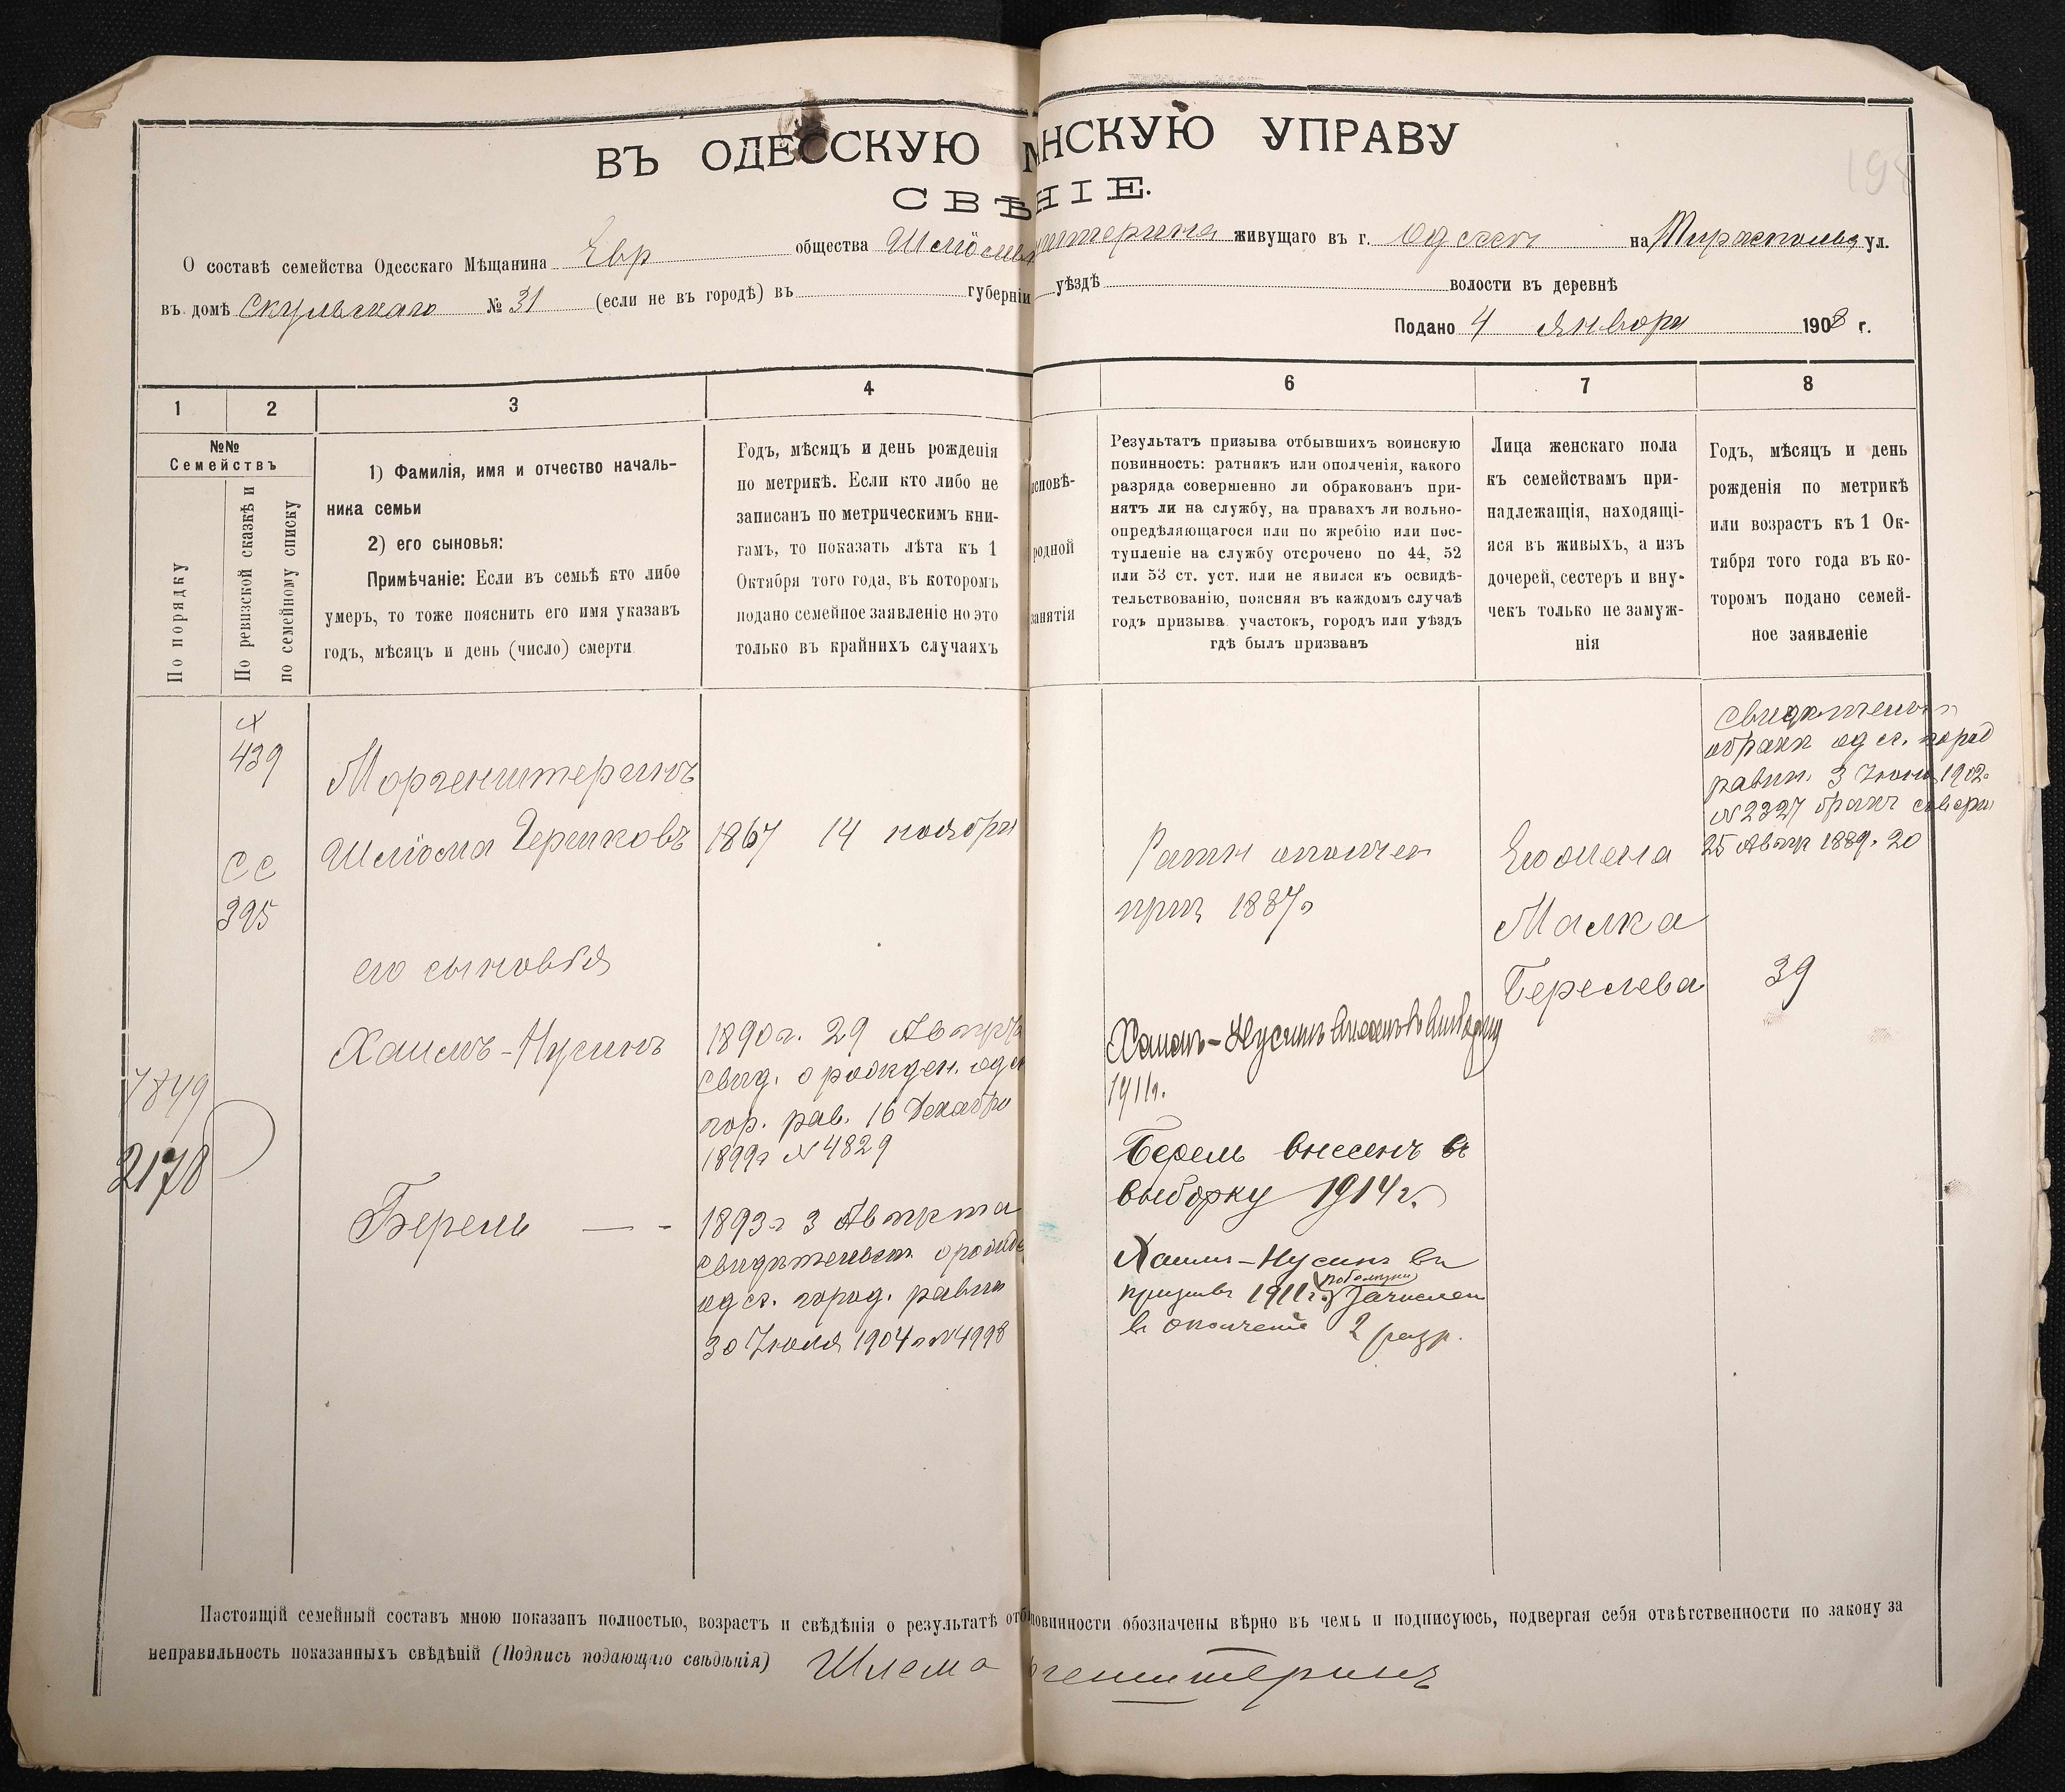 198
ВЪ ОДЕССКУЮ МѢЩАНСКУЮ УПРАВУ
СВѢДѢНІЕ.
О составѣ семейства Одесскаго Мѣщанина Евр общества Шлiомы штерина живущаго въ г. Одессѣ на Тираспольс ул.
въ домѣ Скульскаго № 31 (если не въ городѣ) въ губерніи уѣздѣ волости въ деревнѣ
Подано 4 Января 1908 г.
1
2
3
4
6
7
8
№№
Семействъ
По порядку
По ревизской сказкѣ и
по семейному списку
1) Фамилія, имя и отчество началь-
ника семьи
2) его сыновья:
Примѣчаніе: Если въ семьѣ кто либо
умеръ, то тоже пояснить его имя указавъ
годъ, мѣсяцъ и день (число) смерти
Годъ, мѣсяцъ и день рожденія
по метрикѣ. Если кто либо не
записанъ по метрическимъ кни-
гамъ, то показать лѣта къ 1
Октября того года, въ которомъ
подано семейное заявленіе но это
только въ крайнихъ случаяхъ
исповѣ-
родной
занятія
Результатъ призыва отбывшихъ воинскую
повинность: ратникъ или ополченія, какого
разряда совершенно ли обракованъ при-
нятъ ли на службу, на правахъ ли вольно-
опредѣляющагося или по жребію или пос-
тупленіе на службу отсрочено по 44, 52
или 53 ст. уст. или не явился къ освидѣ-
тельствованію, поясняя въ каждомъ случаѣ
годъ призыва участокъ, городъ или уѣздъ
гдѣ былъ призванъ
Лица женскаго пола
къ семействамъ при-
надлежащія, находящі-
яся въ живыхъ, а изъ
дочерей, сестеръ и вну-
чекъ только не замуж-
нія
Годъ, мѣсяцъ и день
рожденія по метрикѣ
или возрастъ къ 1 Ок-
тября того года въ ко-
торомъ подано семей-
ное заявленіе
439
СС
395
7849
2178
Моргенштернъ
Шлiома Гершковъ
его сыновья
Хаимъ-Нусинъ
Берель — -
1867 14 ноября
1890г. 29 Августа
свид. о рожден. одес
гор. рав. 16 Декабря
1899г № 4829
1893г 3 Августа
свидѣтельст. о рожде
одес. город. равин
30 Iюля 1904г № 4998
Ратн ополчен
приз 1887г
Хаимъ-Нусинъ внесенъ въ выборку
1911г.
Берель внесенъ въ
выборку 1914г.
Хаимъ-Нусинъ въ
призывъ 1911г. зачислен
въ ополченіе 2 разр.
Его жена
Малка
Берелева
39
свидѣтельст
о бракѣ одес. город
равин. 3 Iюня 1902
№ 2327 бракъ соверш
25 Авгус 1889. 20
Настоящій семейный составъ мною показанъ полностью, возрастъ и свѣдѣнія о результатѣ отб повинности обозначены вѣрно въ чемъ и подписуюсь, подвергая себя отвѣтственности по закону за
неправильность показанныхъ свѣдѣній (Подпись подающаго свѣдѣнія) Шлема генштернъ